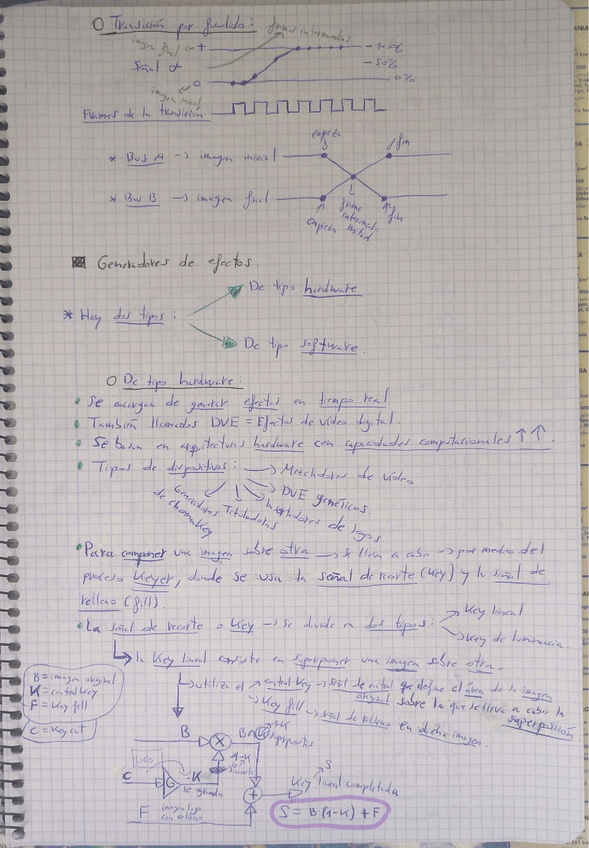 O Transición por fundido:
frames intermedios
imagen final ← +
100%
Señal α
50%
0
0%
imagen inicial
Frames de la transición
* Bus A → imagen inicial
empieza
fin
* Bus B → imagen final
empieza
frame intermedio
mitad
fin
Generadores de efectos.
De tipo hardware
* Hay dos tipos:
De tipo software.
O De tipo hardware:
• Se encargan de generar efectos en tiempo real
• También llamados DVE = Efectos de vídeo digital.
• Se basan en arquitecturas hardware con capacidades computacionales ↑↑.
• Tipos de dispositivos: → Mezcladores de vídeo
→ DVE genéricos
Insertadores de logos
Tituladoras
Generadores de chromakey
• Para componer una imagen sobre otra → se lleva a cabo → por medio del
proceso Keyer, donde se usa la señal de recorte (Key) y la señal de
relleno (fill).
→ Key lineal
• La señal de recorte o Key → se divide en dos tipos:
→ Key de luminancia.
→ la Key lineal consiste en superponer una imagen sobre otra.
→ utiliza el → control Key → señal de control que define el área de la imagen
original sobre la que se lleva a cabo la superposición
→ Key fill → señal de relleno en dicha imagen.
B = imagen original
K = control Key
F = Key fill
C = Key cut
B
X
1-K
C
G
K
se guarda
+
S
Key lineal completada
F
imagen logo
con relleno
S = B·(1-K) + F